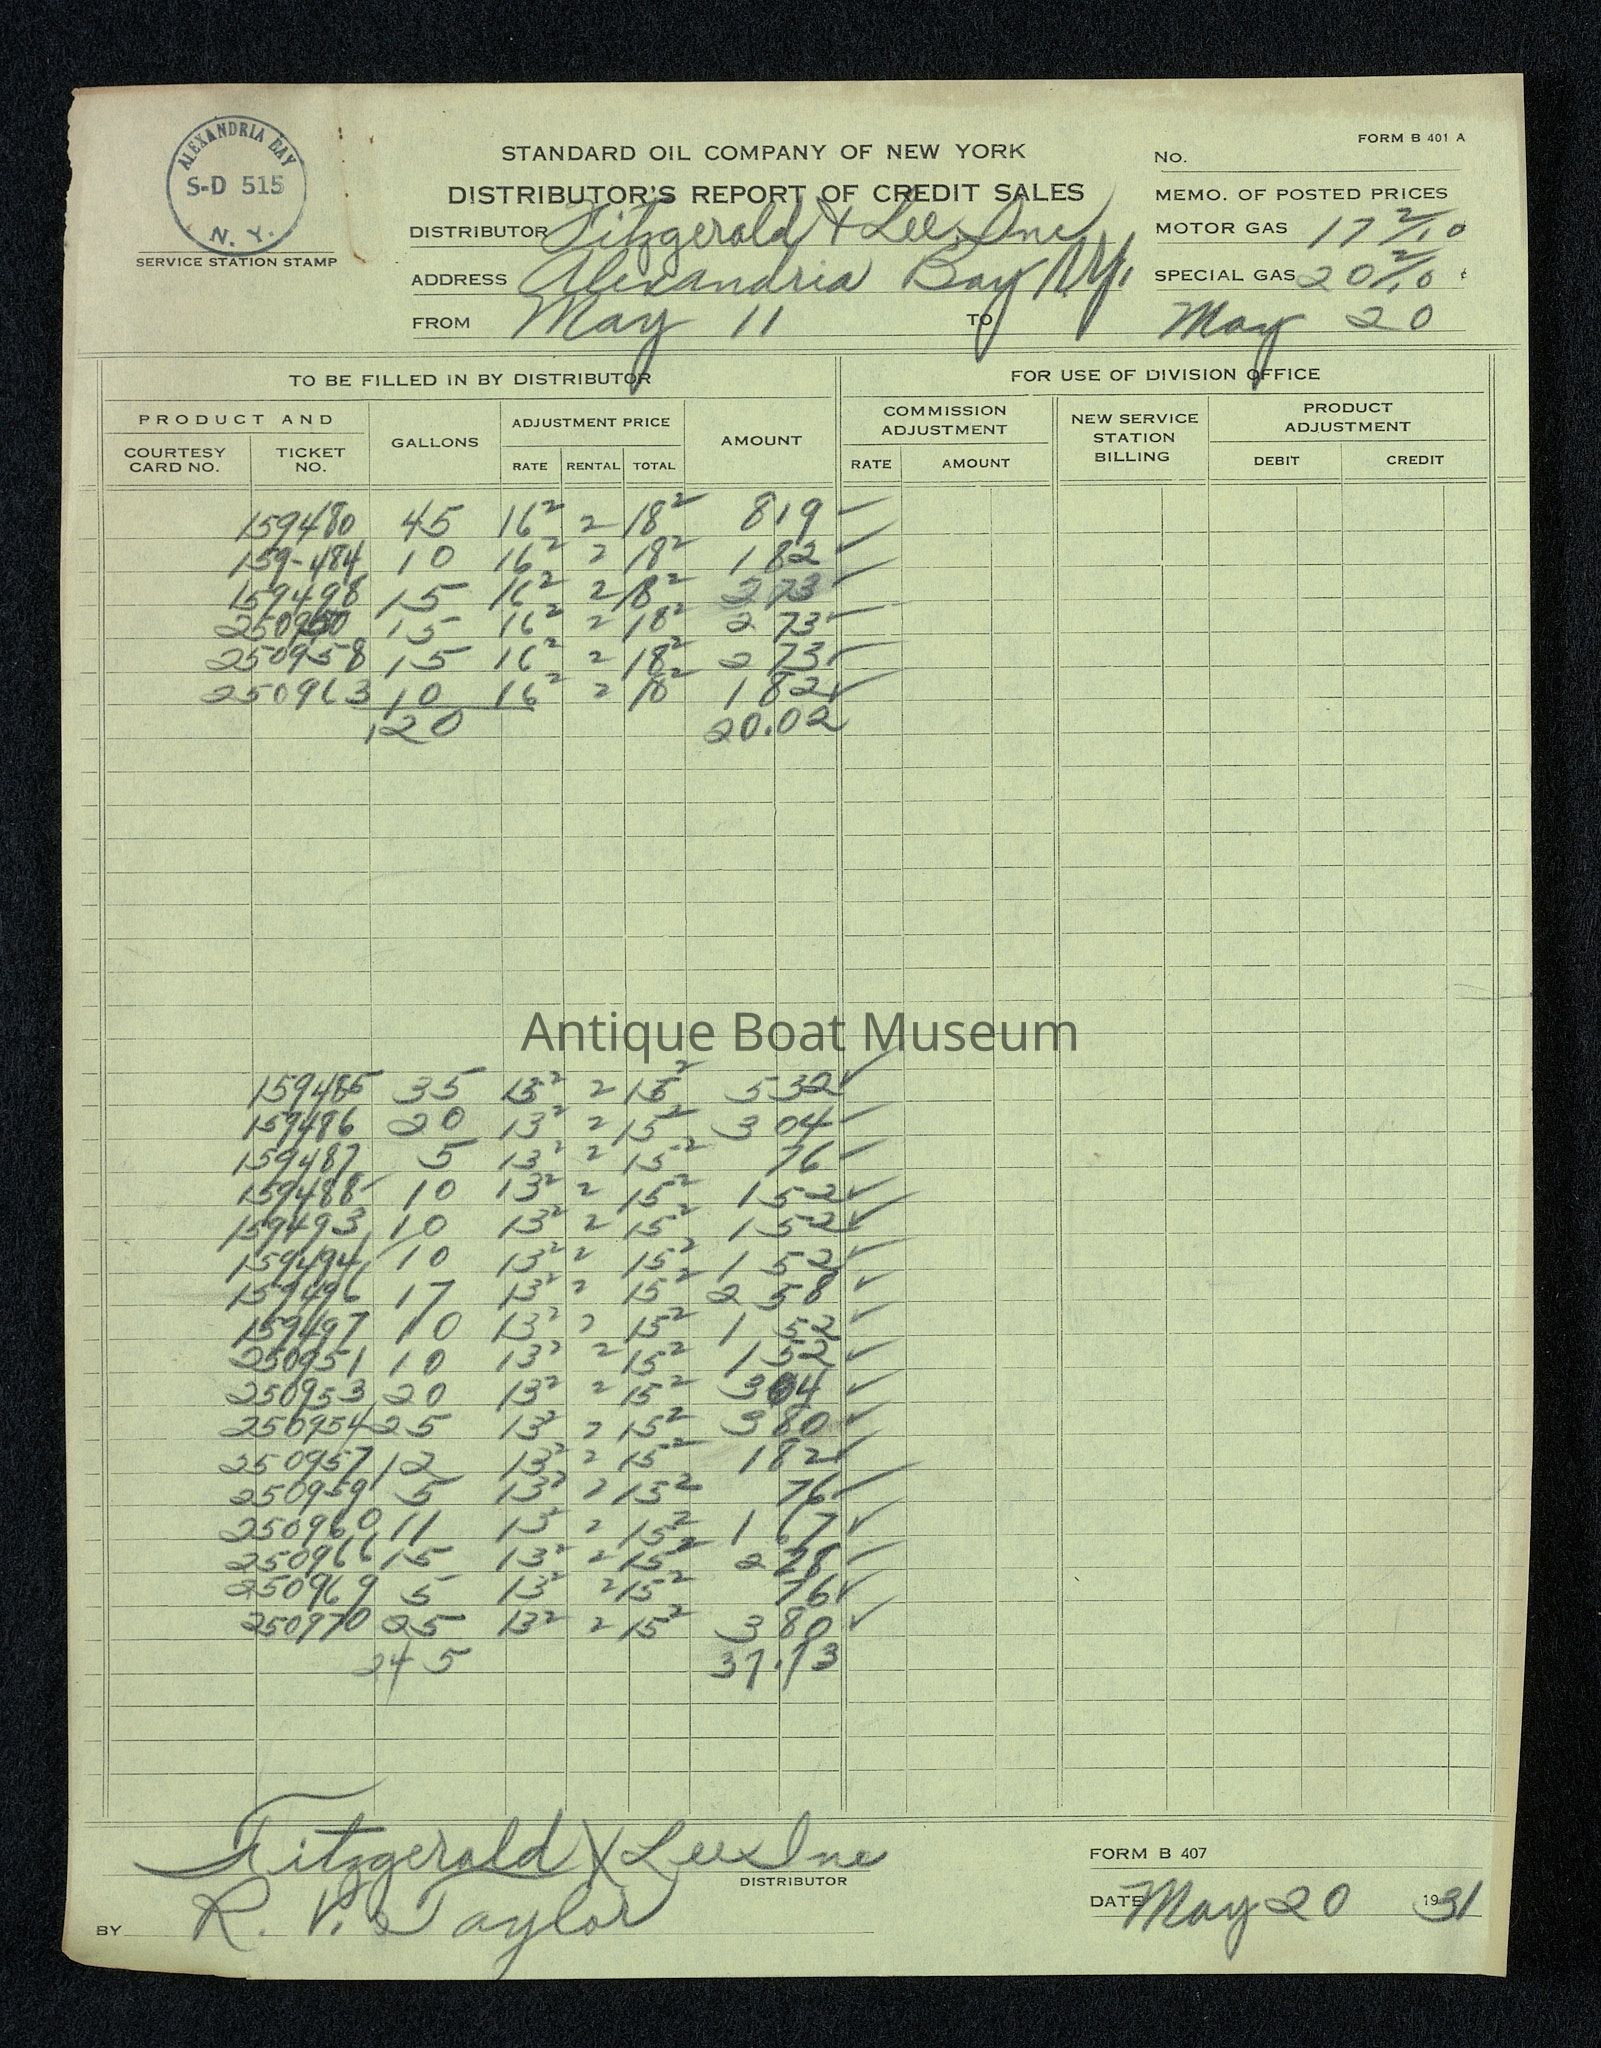 ALEXANDRIA BAY
S-D 515
N. Y.
SERVICE STATION STAMP
STANDARD OIL COMPANY OF NEW YORK
DISTRIBUTOR'S REPORT OF CREDIT SALES
DISTRIBUTOR Fitzgerald & Lee. Inc
ADDRESS Alexandria Bay N.Y.
FROM May 11 TO May 20
FORM B 401 A
NO.
MEMO. OF POSTED PRICES
MOTOR GAS 17 2/10
SPECIAL GAS 20 2/10 ¢
TO BE FILLED IN BY DISTRIBUTOR
FOR USE OF DIVISION OFFICE
PRODUCT AND
COURTESY CARD NO. TICKET NO. GALLONS ADJUSTMENT PRICE RATE RENTAL TOTAL AMOUNT
COMMISSION ADJUSTMENT RATE AMOUNT NEW SERVICE STATION BILLING PRODUCT ADJUSTMENT DEBIT CREDIT
159480 45 16² 2 18² 8 19 ✓
159-484 10 16² 2 18² 1 82 ✓
159498 15 16² 2 18² 2 73 ✓
15 16² 2 18² 2 73 ✓
250958 15 16² 2 18² 2 73 ✓
250963 10 16² 2 18² 1 82 ✓
120 20.02
Antique Boat Museum
159485 35 13² 2 15² 5 32 ✓
159486 20 13² 2 15² 3 04 ✓
159487 5 13² 2 15² 76 ✓
159488 10 13² 2 15² 1 52 ✓
159493 10 13² 2 15² 1 52 ✓
159494 10 13² 2 15² 1 52 ✓
159496 17 13² 2 15² 2 58 ✓
159497 10 13² 2 15² 1 52 ✓
250951 10 13² 2 15² 1 52 ✓
250953 20 13² 2 15² 3 04 ✓
250954 25 13² 2 15² 3 80 ✓
250957 12 13² 2 15² 1 82 ✓
250959 5 13² 2 15² 76 ✓
250960 11 13² 2 15² 1 67 ✓
250966 15 13² 2 15² 2 28 ✓
250969 5 13² 2 15² 76 ✓
250970 25 13² 2 15² 3 80 ✓
245
Fitzgerald & Lee Inc
DISTRIBUTOR
BY R. V. Taylor
FORM B 407
DATE May 20 1931